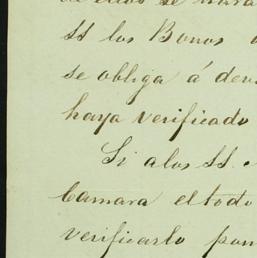 de ellos se hara
SS los Bonos
se obliga á dev
haya verificado
Si a los SS.
Camara el todo
verificarlo pon